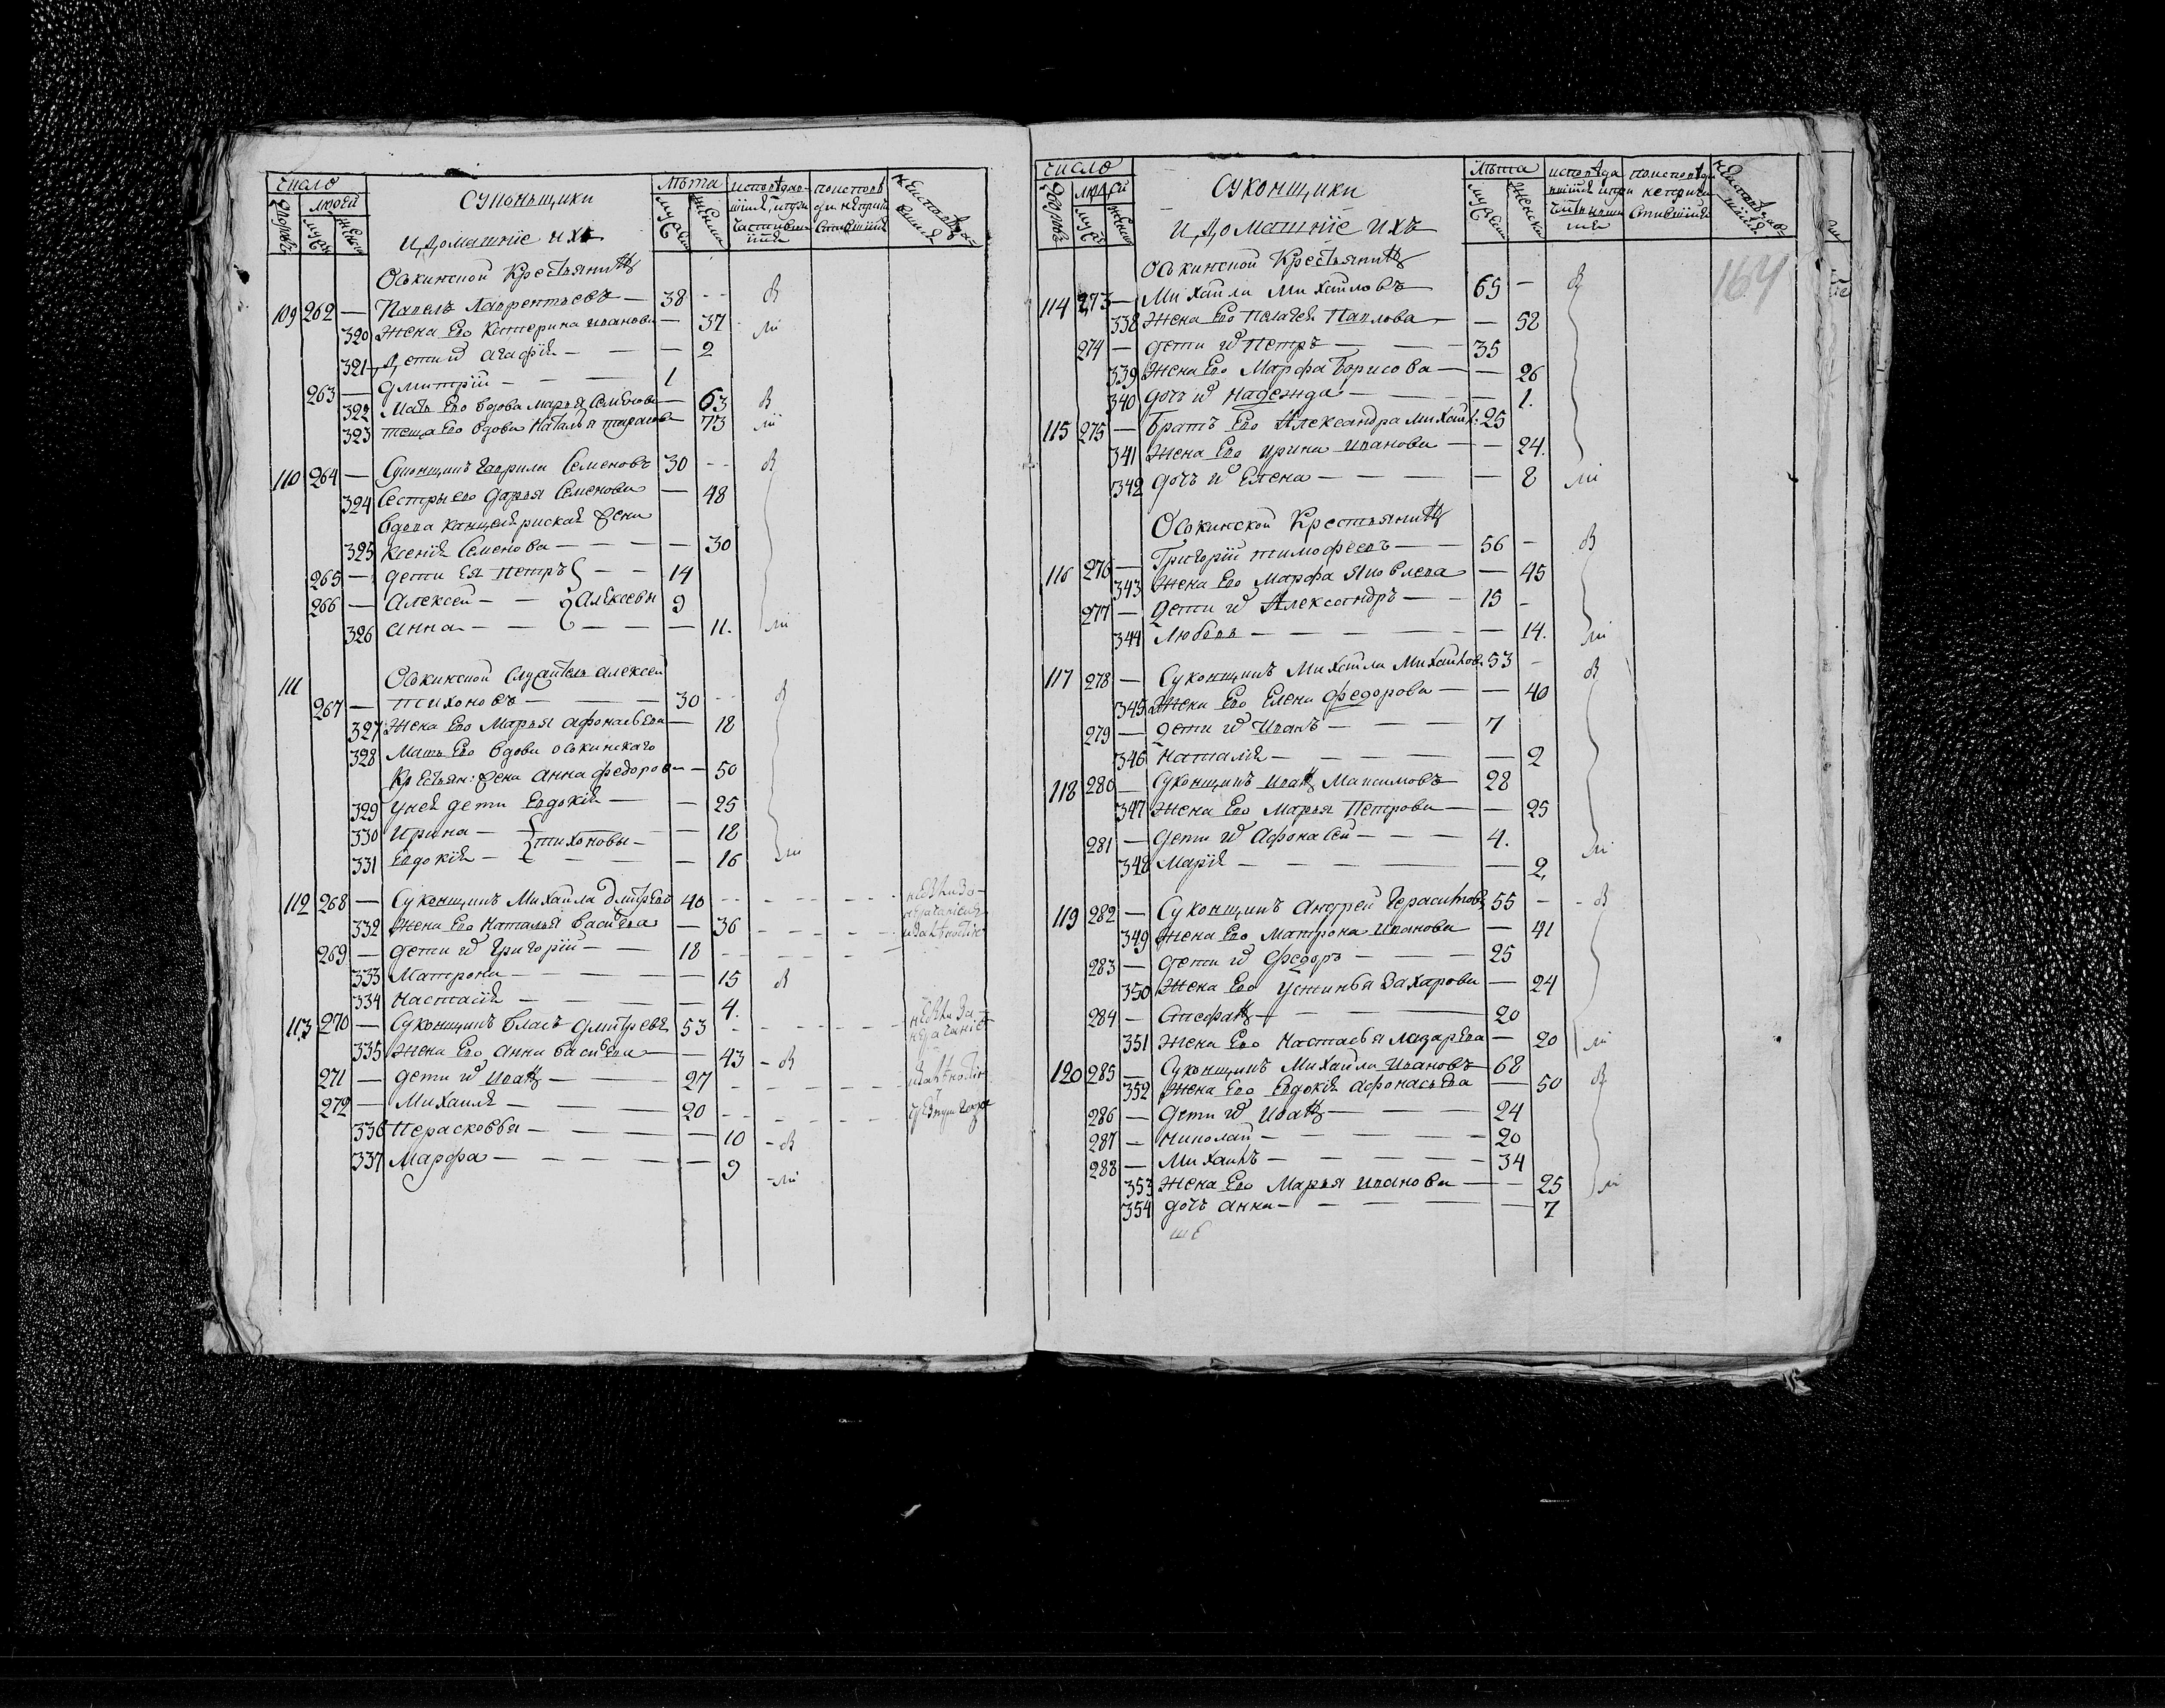 число
людей
дворовъ
муск
женск
Суконьщики
и домашніе ихъ
лѣта
муска
женска
исповѣдав
шіися и при
частивши
шіися
по исповѣ
ди не прича
стившіися
не исповѣда-
вшіися
Оськинской Крестьянинъ
109 262 — Павелъ Лаврентьевъ — 38 - -
320 Жена Его Катерина Иванова — 37
321 Дети и҃ Агафія — — — 2
263 — Дмитрій — — — 1
322 Мать Его вдова Марья Семенова — 63
323 теща Его вдова Наталья — 73
110 264 — Суконщикъ Гаврила Семеновъ 30 - -
324 Сестры его Дарья Семенова — 48
вдова канцелярская жена
325 Ксенія Семенова — — — — 30
265 — дети Ея Петръ — — 14
266 — Алексей — — Алексевы 9
326 Анна — — — — — 11.
111 Оськинской Служитель Алексей
267 — тихоновъ — — — 30 - -
327 Жена Его Марья Афонасьева — 18
328 Мать Его вдова оськинскаго
Крестьян: жена Анна Федорова — 50
329 у ней дети Евдокія — — 25
330 Ирина — — 18
тихоновы —
331 Евдокія — — — — 16
112 268 — Суконщикъ Михайла Дмитревъ 40 - - - - -
332 Жена Его Наталья Васильева — 36 - - - - -
269 — дети и҃ Григорій — — 18 - - - - -
333 Матрона — — — — — 15
334 Настасія — — — — 4.
113 270 — Суконщикъ Власъ Дмитревъ 53 - - - - -
335 Жена Его Анна Васильева — — 43
271 — дети и҃ Иванъ — — 27 - - - - -
272 — Михаила — — — 20 - - - - -
336 Перасковья — — — — 10
337 Марфа — — — — — 9
число
людей
дворовъ
муск
женск
Суконщики
и домашніе ихъ
лѣта
муска
женска
исповѣда
вшіися и при
частивши
шіися
по исповѣди
не прича
стившіися
не исповѣдав
шіися
164
Оськинской Крестьянинъ
114 273 — Михайла Михайловъ — 65 —
338 Жена Его Пелагея Павлова — — 52
274 — дети и҃ Петръ — — — 35
339 Жена Его Марфа Борисова — — 26
340 дочь и҃ Надежда — — — — 1.
115 275 — Братъ Его Александра Михайл: 25
341 Жена Его Ирина Иванова — — 24.
342 дочь и҃ Елена — — — — 8
Оськинской Крестьянинъ
116 276 — Григорій тимофеевъ — — 56 —
343 Жена Его Марфа Яковлева — 45
277 — дети и҃ Александръ — — 15 -
344 Любовь — — — — — 14.
117 278 — Суконщикъ Михайла Михайлов 53 -
345 Жена Его Елена Федорова — — 40
279 — дети и҃ Иванъ — — — 7
346 Наталія — — — — — 2
118 280 — Суконщикъ Иванъ Максимовъ 28
347 Жена Его Марья Петрова — — 25
281 — дети и҃ Афонасей — — — 4.
348 Марія — — — — — 2
119 282 — Суконщикъ Андрей Герасимовъ 55 -
349 Жена Его Матрона Иванова — 41
283 — дети и҃ Федоръ — — — 25
350 Жена Его Устинья Захарова — 24
284 — Стефанъ — — — — 20
351 Жена Его Настасья Лазарева — 20
120 285 — Суконщикъ Михайла Ивановъ — 68
352 Жена Его Евдокія Афонасьева — 50
286 — дети и҃ Иванъ — — — 24
287 — Николай — — — — 20
288 — Михайлъ — — — — 34
353 Жена Его Марья Иванова — — 25
354 дочь Анна — — — — — 7